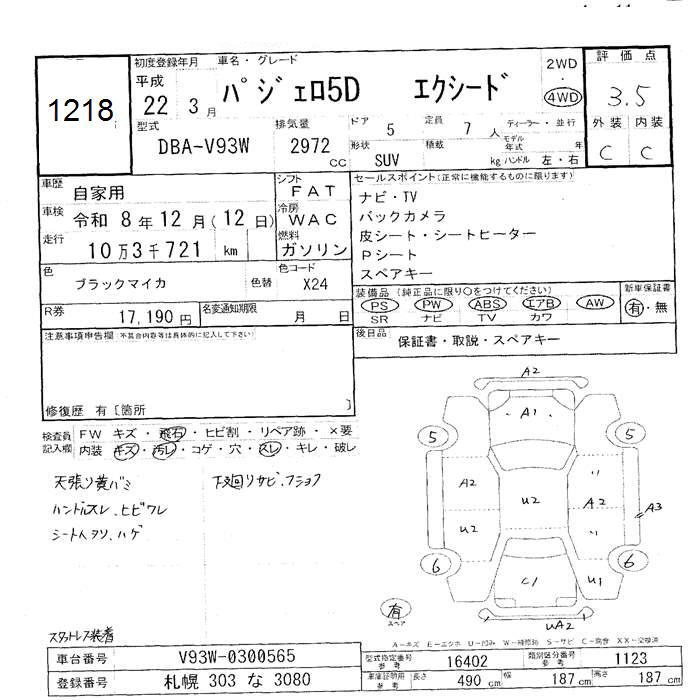 1218
初度登録年月
車名・グレード
平成
22 3月
パジェロ5D エクシード
2WD
・
4WD
評価点
3.5
外装 内装
C C
型式
DBA-V93W
排気量
2972
cc
ドア
5
定員
7 人
ディーラー・並行
モデル年式 年
形状
SUV
積載
kg
ハンドル 左・右
車歴
自家用
車検
令和 8年12月(12日)
走行
10万3千721 km
シフト
FAT
冷房
WAC
燃料
ガソリン
色
ブラックマイカ
色替
色コード
X24
R券
17,190 円
名変通知期限
月 日
セールスポイント(正常に機能するものに限ります)
ナビ・TV
バックカメラ
皮シート・シートヒーター
Pシート
スペアキー
装備品(純正品に限り○をつけてください)
PS PW ABS エアB AW
SR ナビ TV カワ
新車保証書
有・無
後日品
保証書・取説・スペアキー
注意事項申告欄 不具合内容等は具体的に記入して下さい)
修復歴 有〔箇所 〕
検査員記入欄
FW キズ・飛石・ヒビ割・リペア跡・×要
内装 キズ・汚レ・コゲ・穴・スレ・キレ・破レ
天張り黄バミ
ハンドルスレ、ヒビワレ
シートヘタリ、ハゲ
下廻リサビ、フショク
スタットレス装着
A2
A1
5 5
A2 U2 A2
U2
A3
6 6
C1 U1
UA2
有
スペア
A-キズ E-エクボ U-凹み W-補修跡 S-サビ C-腐食 XX-交換済
車台番号
V93W-0300565
登録番号
札幌 303 な 3080
型式指定番号 参考
16402
類別区分番号 参考
1123
車庫証明用 参考
長さ 490 cm
幅 187 cm
高さ 187 cm